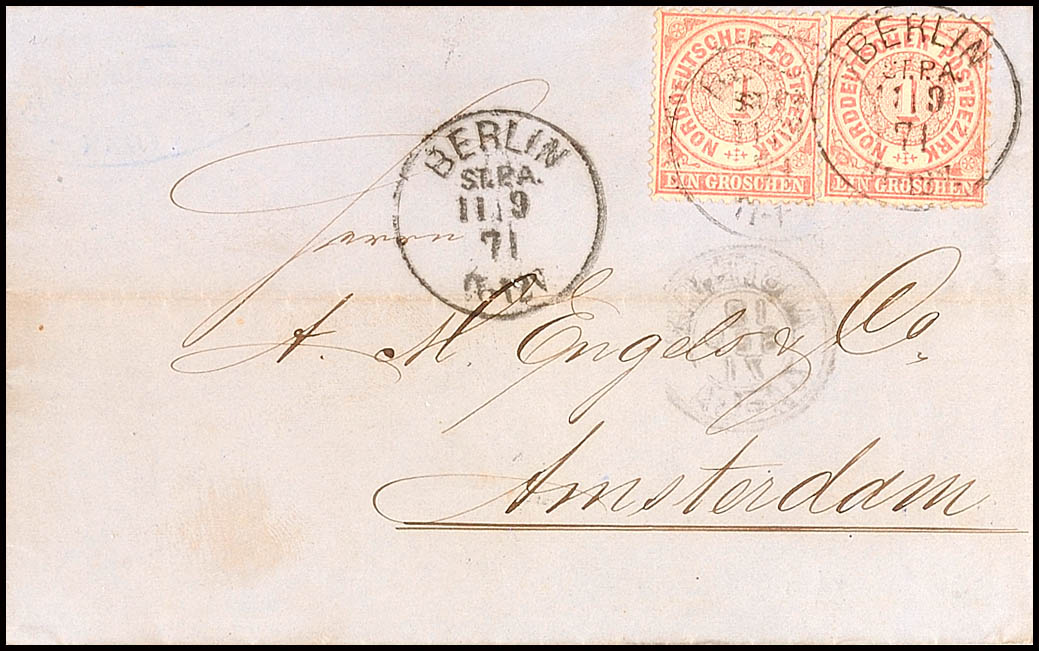 NORDDEUTSCHER POSTBEZIRK
1
EIN GROSCHEN
NORDDEUTSCHER POSTBEZIRK
1
EIN GROSCHEN
BERLIN
ST.P.A.
11 9
71
BERLIN
ST.P.A.
11 9
71
Herrn
A. M. Engels & Co.
Amsterdam